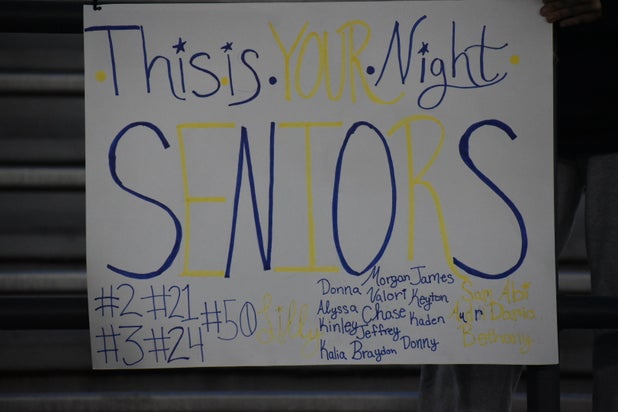 This is YOUR Night
SENIORS
#2 #21
#3 #24
#50
Billy
Donna Morgan James
Alyssa Valori Keyton
Kinley Chase Kaden
Jeffrey
Kalia Braydon Donny
Sar Abi
Dania
Bethany